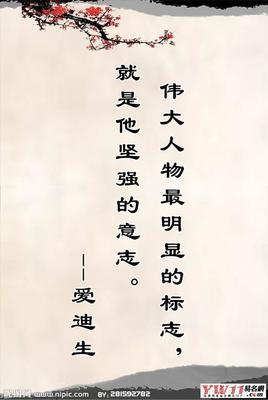 伟大人物最明显的标志，
就是他坚强的意志。
——爱迪生
YW11易名網
昵图网 nipic.com BY: 201592782